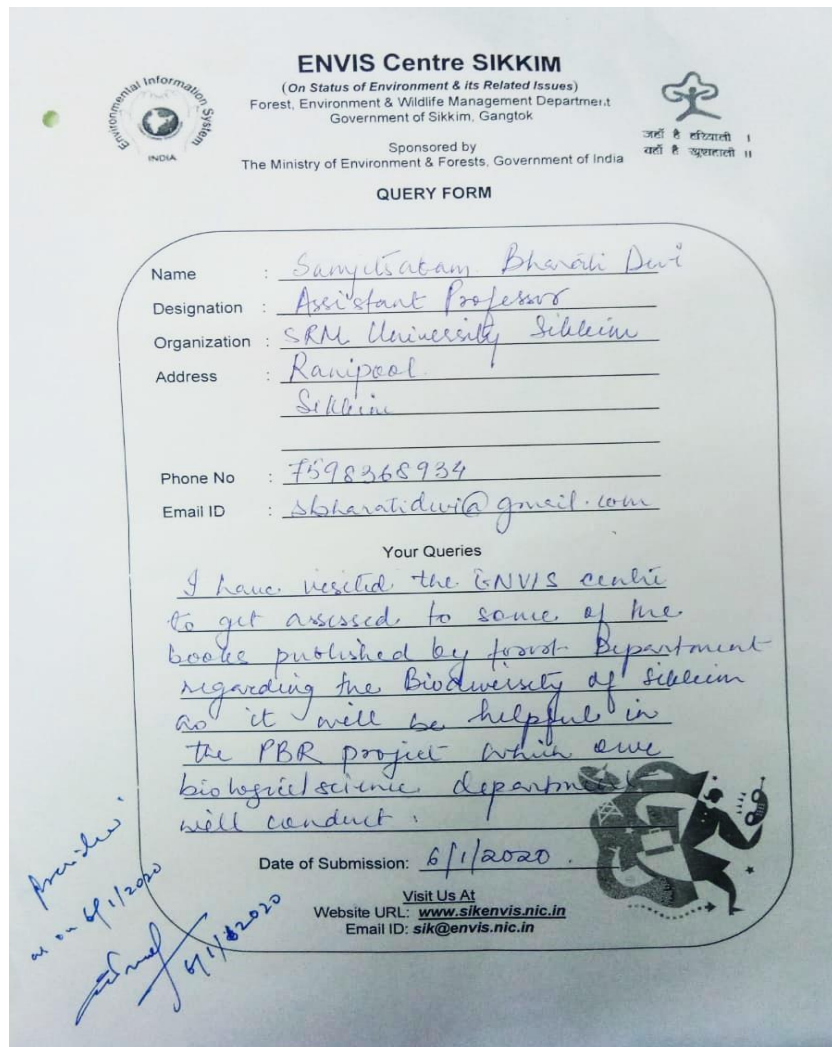 ENVIS Centre SIKKIM
(On Status of Environment & its Related Issues)
Forest, Environment & Wildlife Management Department
Government of Sikkim, Gangtok
Sponsored by
The Ministry of Environment & Forests, Government of India
Environmental Information System
INDIA
जहाँ है हरियाली ।
वहाँ है खुशहाली ॥
QUERY FORM
Name : Bharati Devi
Designation : Assistant Professor
Organization : SRM University Sikkim
Address : Ranipool
Sikkim
Phone No : 7598368934
Email ID : sbharatidevi@gmail.com
Your Queries
I have visited the ENVIS centre
to get assessed to some of the
books published by forest Department
regarding the Biodiversity of Sikkim
as it will be helpful in
the PBR project which our
biological science department
will conduct.
Date of Submission: 6/1/2020.
Visit Us At
Website URL: www.sikenvis.nic.in
Email ID: sik@envis.nic.in
as on 6/1/2020
6/1/2020